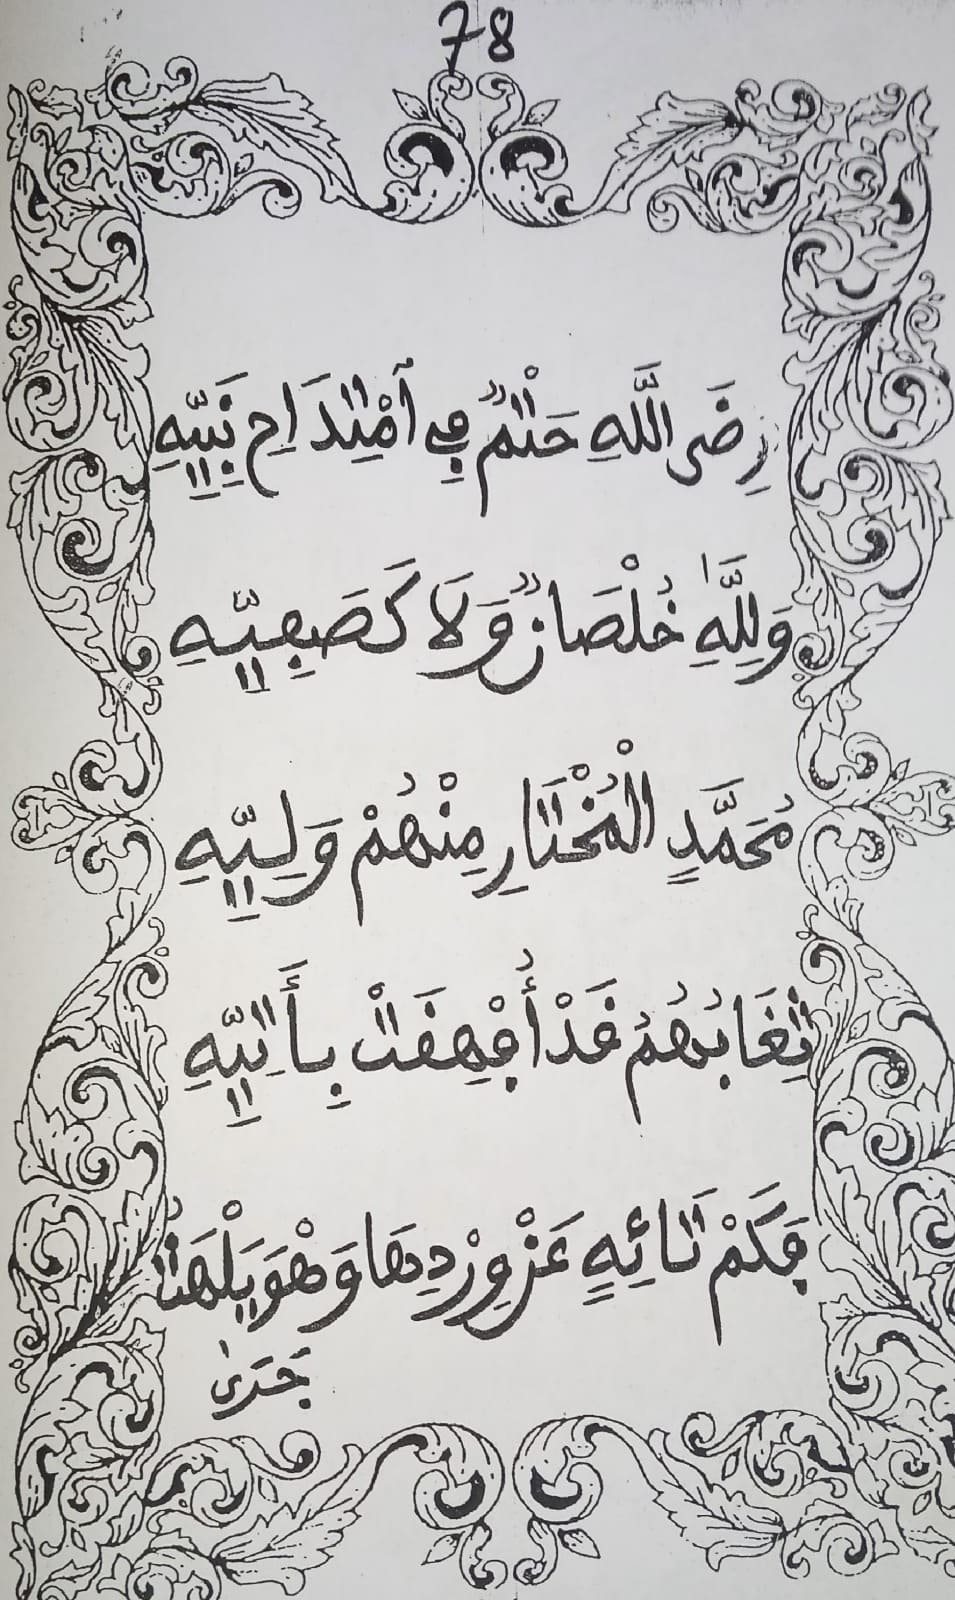 78
رِضَى اللَّهِ حَتْمٌ فِي امْتِدَاحِ نَبِيِّهِ
وَلِلَّهِ خُلْصَانٌ وَلَا كَصَفِيِّهِ
مُحَمَّدٍ الْمُخْتَارِ مِنْهُمْ وَلِيِّهِ
قَدْ أُفْهِقَتْ بِأَتِيِّهِ
فَكَمْ تَائِهٍ عَنْ وِرْدِهَا وَهْوَ يَلْهَثُ
جَدَى